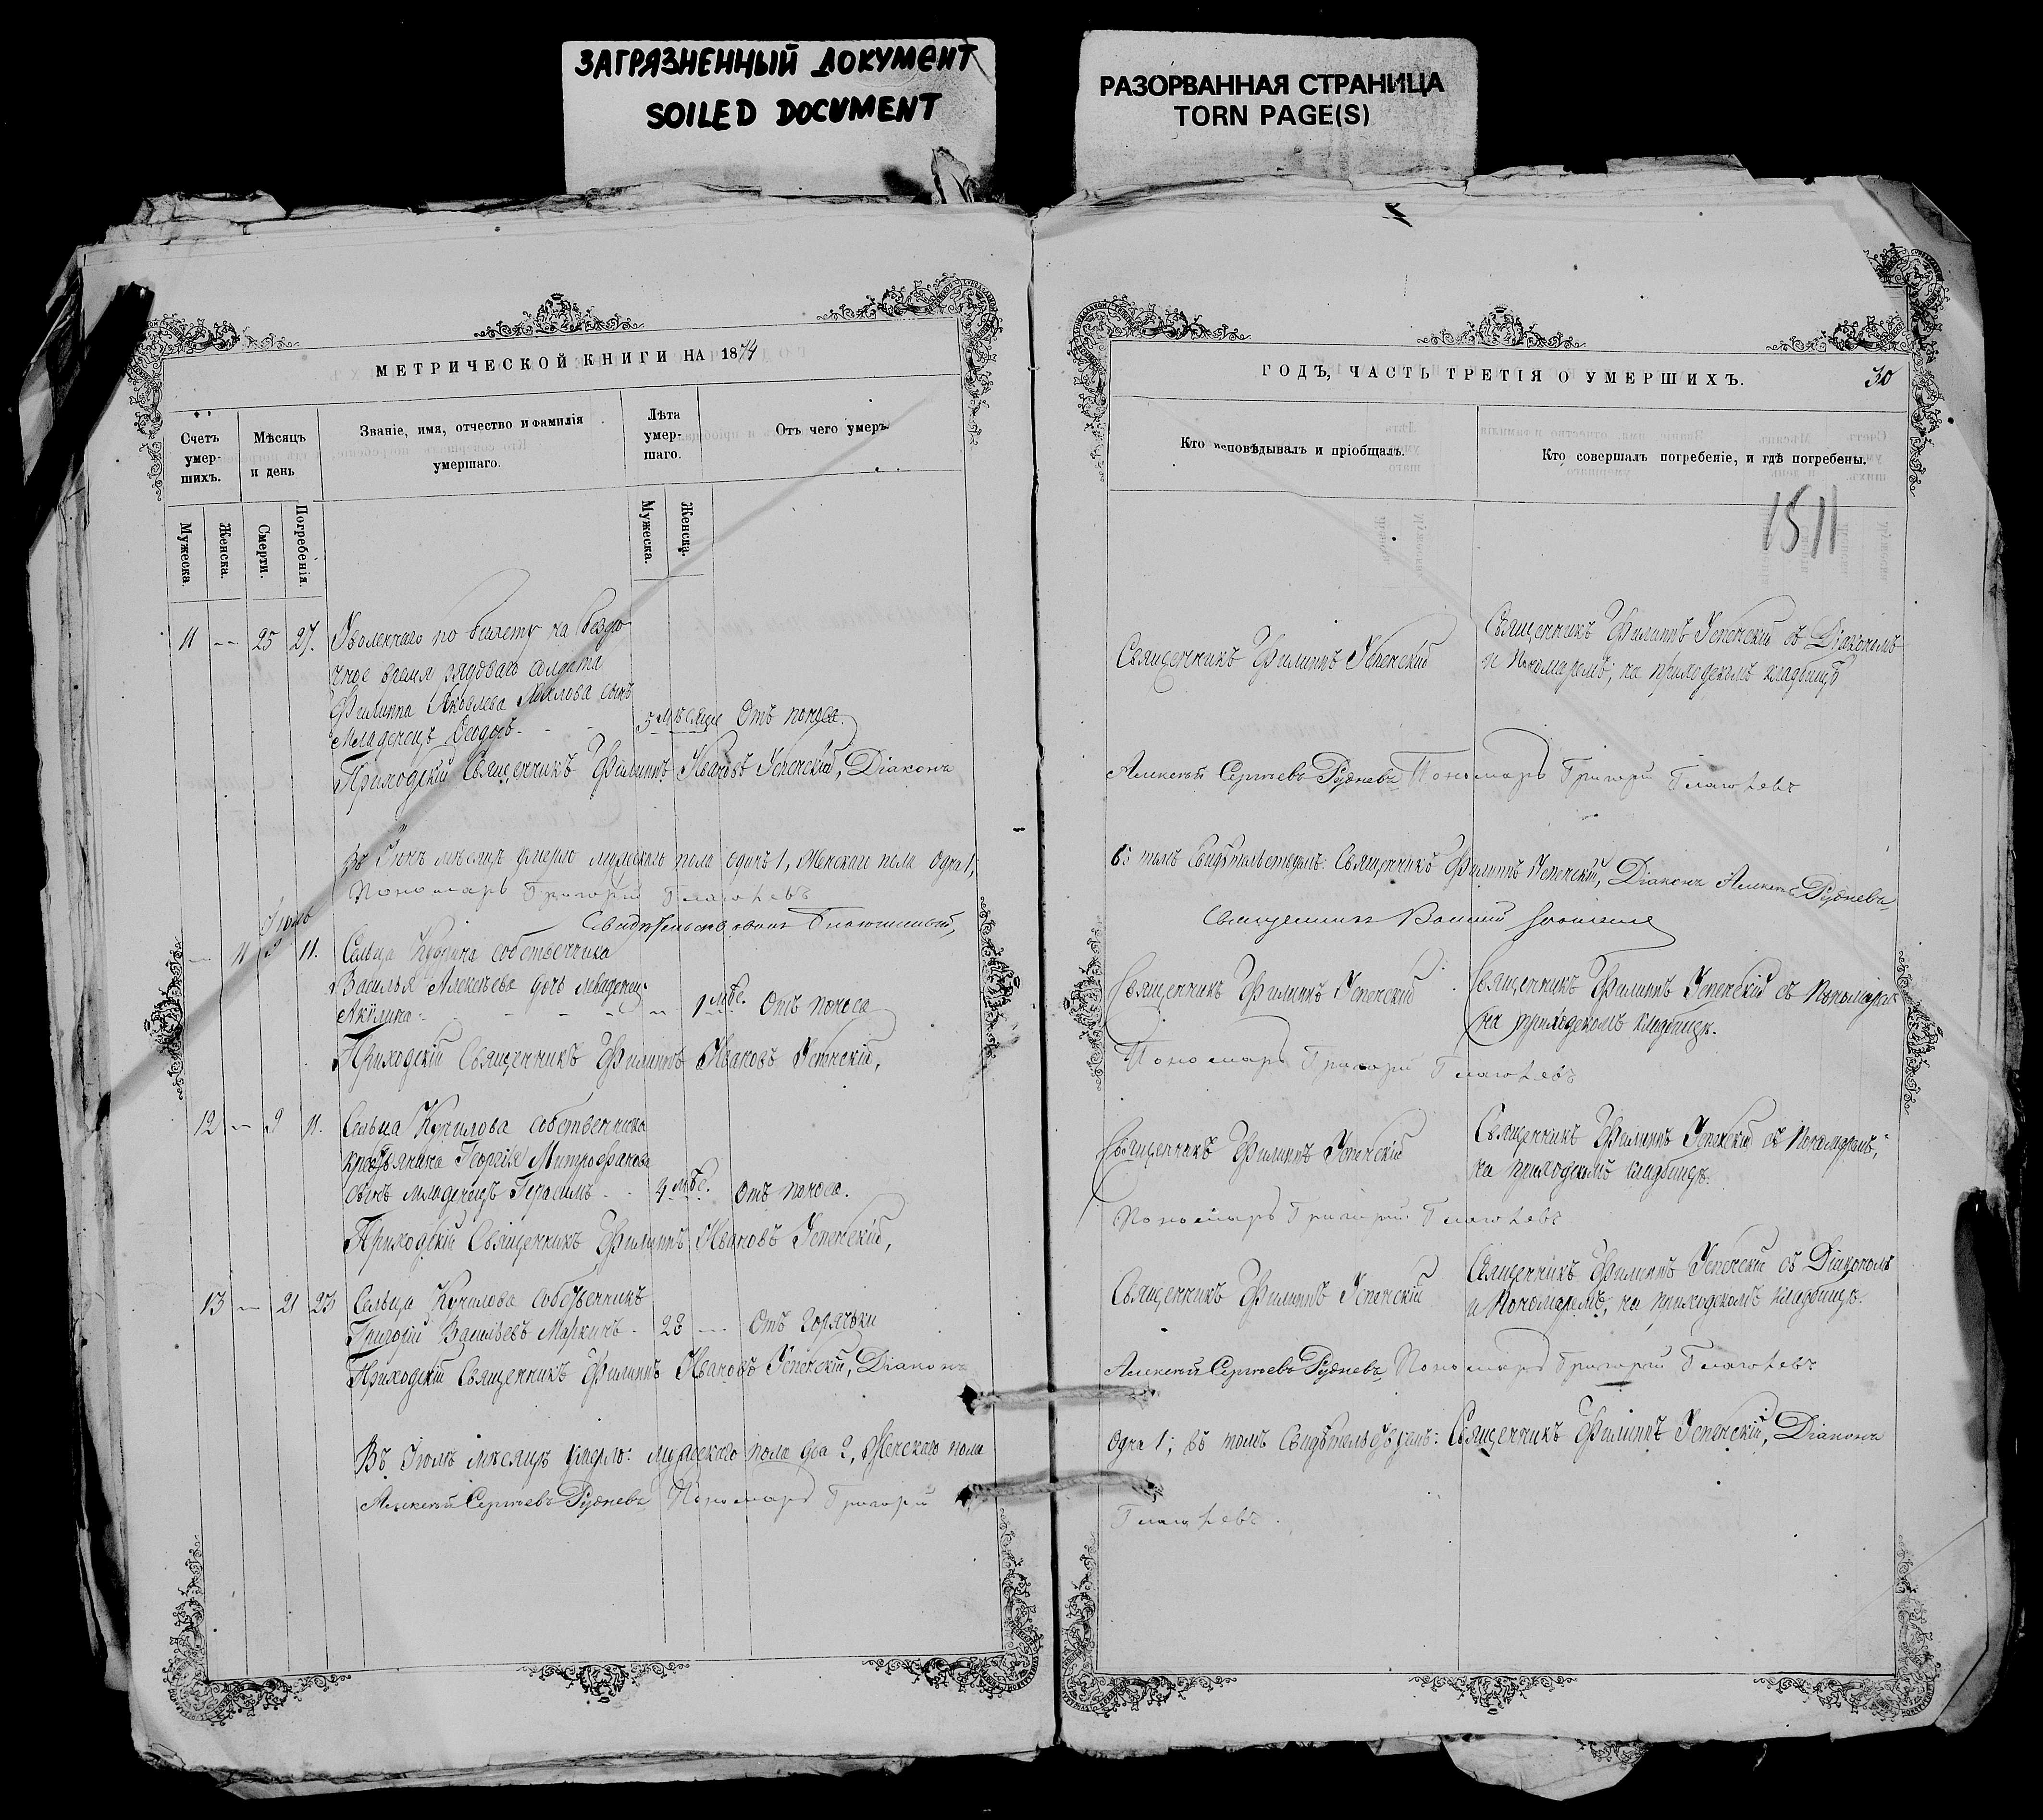 ЗАГРЯЗНЕННЫЙ ДОКУМЕНТ
SOILED DOCUMENT
РАЗОРВАННАЯ СТРАНИЦА
TORN PAGE(S)
МЕТРИЧЕСКОЙ КНИГИ НА 1874
Счетъ умер-шихъ.
Мѣсяцъ и день
Званіе, имя, отчество и фамилія умершаго.
Лѣта умер-шаго.
Отъ чего умеръ.
Мужеска.
Женска.
Смерти.
Погребенія.
Мужеска.
Женска.
11 — 25 27. Уволеннаго по билету на безсро
чное время рядоваго солдата
Филиппа Яковлева сынъ
Младенецъ Ѳеодоръ - - 5 мѣсяц Отъ поноса.
Приходскій Священникъ Филиппъ Ивановъ Успенскій, Діаконъ
Въ Іюнѣ мѣсяцѣ умерло мужескаго пола одинъ 1, женскаго пола одна 1;
Пономарь Григорій
Іюль
Свидѣтельствовалъ Благочинный,
— 11 9 11. Сельца собственника
Василья Алексѣева дочь младенецъ
Акулина - - - - — 1 мѣс. Отъ поноса
Приходскій Священникъ Филиппъ Ивановъ Успенскій,
12 — 9 11. Сельца Курилова собственника
крестьянина Георгія Митрофанова
сынъ младенецъ Герасимъ - - 4 мѣс. Отъ поноса.
Приходскій Священникъ Филиппъ Ивановъ Успенскій,
13 — 21 23 Сельца Курилова собственникъ
Григорій Васильевъ Маркинъ - 28 — Отъ горячки
Приходскій Священникъ Филиппъ Ивановъ Успенскій, Діаконъ
Въ Іюлѣ мѣсяцѣ умерло: мужескаго пола два 2, Женскаго пола
Алексѣй Сергѣевъ Рудневъ Пономарь Григорій
ГОДЪ, ЧАСТЬ ТРЕТІЯ О УМЕРШИХЪ.
30
Кто исповѣдывалъ и пріобщалъ.
Кто совершалъ погребеніе, и гдѣ погребены.
1511
Священникъ Филиппъ Успенскій
Священникъ Филиппъ Успенскій съ Діакономъ
и Пономаремъ, на приходскомъ кладбищѣ
Алексѣй Сергѣевъ Рудневъ Пономарь Григорій
въ томъ свидѣтельствуемъ: Священникъ Филиппъ Успенскій, Діаконъ Алексѣй Рудневъ,
Священникъ
Священникъ Филиппъ Успенскій
Священникъ Филиппъ Успенскій съ Пономаремъ
на приходскомъ кладбищѣ.
Пономарь Григорій
Священникъ Филиппъ Успенскій
Священникъ Филиппъ Успенскій съ Пономаремъ,
на приходскомъ кладбищѣ.
Пономарь Григорій
Священникъ Филиппъ Успенскій
Священникъ Филиппъ Успенскій съ Діакономъ
и Пономаремъ, на приходскомъ кладбищѣ.
Алексѣй Сергѣевъ Рудневъ Пономарь Григорій
одна 1; въ томъ свидѣтельствуемъ: Священникъ Филиппъ Успенскій, Діаконъ